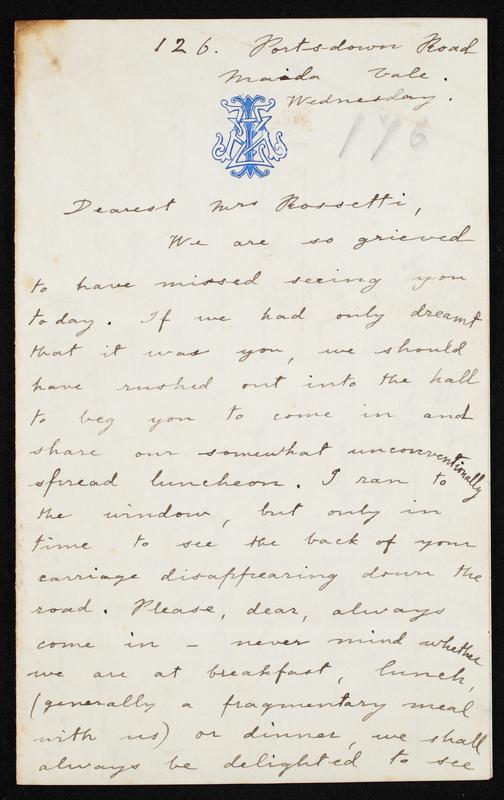 126. Portsdown Road
Maida Vale.
Wednesday.
176
Dearest Mrs Rossetti,
We are so grieved
to have missed seeing you
today. If we had only dreamt
that it was you, we should
have rushed out into the hall
to beg you to come in and
share our somewhat unconventionally
spread luncheon. I ran to
the window, but only in
time to see the back of your
carriage disappearing down the
road. Please, dear, always
come in – never mind whether
we are at breakfast, lunch,
(generally a fragmentary meal
with us) or dinner, we shall
always be delighted to see